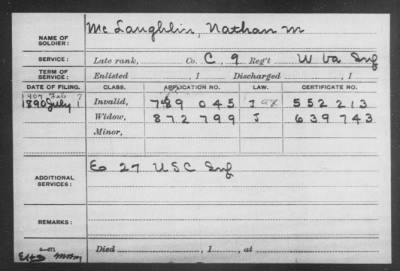 NAME OF SOLDIER: McLaughlin, Nathan M
SERVICE: Late rank, Co. C, 9 Reg't W Va Inf
TERM OF SERVICE: Enlisted , 1 Discharged , 1
DATE OF FILING. CLASS. APPLICATION NO. LAW. CERTIFICATE NO.
1890 July 1 Invalid, 789 045 J 552213
1907 Feb 7 Widow, 872 799 J 639743
Minor,
ADDITIONAL SERVICES: Co 27 USC Inf
REMARKS:
Died , 1 , at